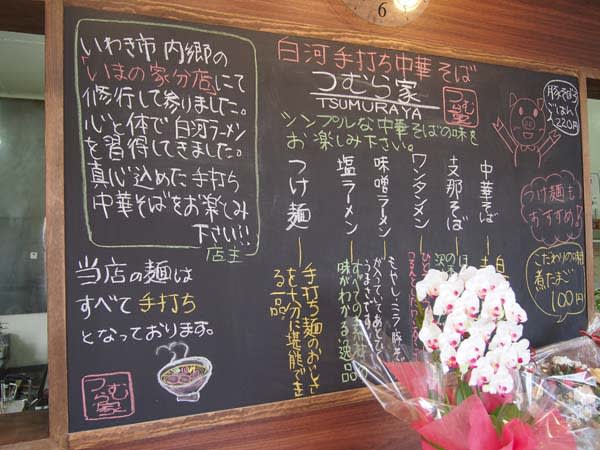 6
いわき市 内郷の
「いまの家分店」にて
修行して参りました。
心と体で白河ラーメン
を習得してきました。
真心込めた手打ち
中華そばをお楽しみ
下さい!!
店主
当店の麺は
すべて手打ち
となっております。
つむら家
白河手打ち中華そば
つむら家
TSUMURAYA
つむら家
シンプルな中華そばの味を
お楽しみ下さい。
中華そば
支那そば
ワンタンメン
味噌ラーメン
もやし、ニラ、豚そ
塩ラーメン
すべての
味がわかる逸品
つけ麺
手打ち麺のおいしさ
を十分に堪能でき
る一品
豚そぼろ
ごはん
220円
つけ麺も
おすすめ♪
こだわりの味
煮たまご
100円